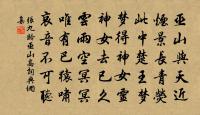 巫山與天近
煙景長青熒
此中楚王夢
夢得神女靈
神女去已久
雲雨空冥冥
唯有巴猿嘯
哀音不可聽
張九齡巫山高詞典網
集